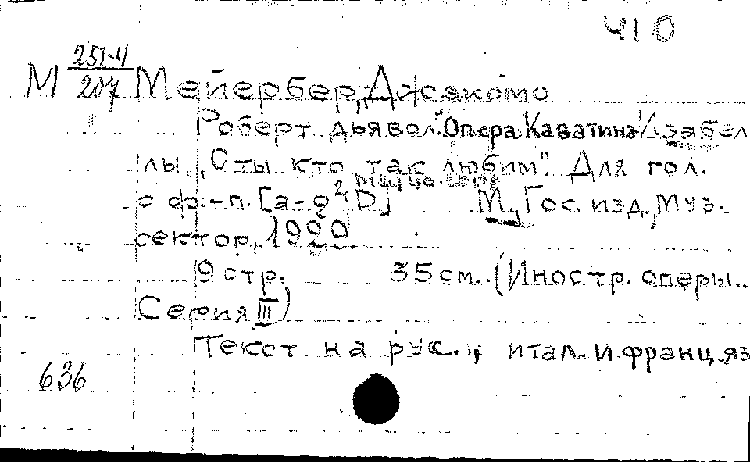 410
М 251-4/207 Мейербер, Джякомо
"Роберт дьявол". Опера. Каватина Изабел
лы „О ты кто так любим". Для гол.
с ф.-п. [a-g² D] М., Гос. изд. Муз.
сектор,
9 стр. 35 см. (Иностр. оперы.
Серия III)
Текст на рус., итал. и франц. яз
636